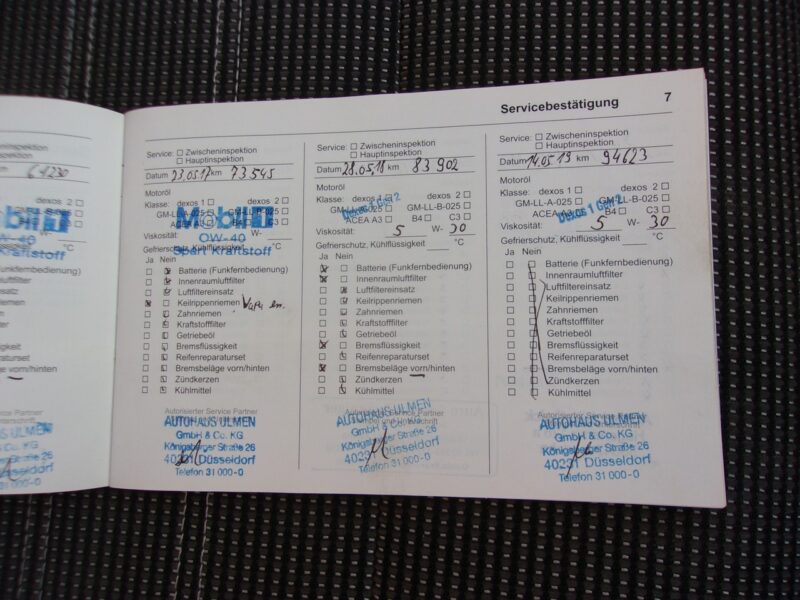 Servicebestätigung 7
61230
Mobil 1
0W-40
Spart Kraftstoff
°C
AUTOHAUS ULMEN
GmbH & Co. KG
Königsberger Straße 26
40231 Düsseldorf
Telefon 31 000-0
Service: Zwischeninspektion
Hauptinspektion
Datum 23.05.17 km 73545
Motoröl
Klasse: dexos 1 dexos 2
GM-LL-A-025 GM-LL-B-025
Mobil 1
Viskosität:
0W-40
Gefrierschutz, Kühlflüssigkeit °C
Spart Kraftstoff
Ja Nein
Batterie (Funkfernbedienung)
Innenraumluftfilter
Luftfiltereinsatz
Keilrippenriemen
Zahnriemen
Kraftstofffilter
Getriebeöl
Bremsflüssigkeit
Reifenreparaturset
Bremsbeläge vorn/hinten
Zündkerzen
Kühlmittel
Autorisierter Service Partner
AUTOHAUS ULMEN
GmbH & Co. KG
Königsberger Straße 26
40231 Düsseldorf
Telefon 31 000-0
Service: Zwischeninspektion
Hauptinspektion
Datum 28.05.18 km 83902
Motoröl
Klasse: dexos 1 dexos 2
GM-LL-A-025 GM-LL-B-025
ACEA A3 B4 C3
Viskosität: 5 W- 30
Gefrierschutz, Kühlflüssigkeit °C
Ja Nein
Batterie (Funkfernbedienung)
Innenraumluftfilter
Luftfiltereinsatz
Keilrippenriemen
Zahnriemen
Kraftstofffilter
Getriebeöl
Bremsflüssigkeit
Reifenreparaturset
Bremsbeläge vorn/hinten
Zündkerzen
Kühlmittel
AUTOHAUS ULMEN
GmbH & Co. KG
Königsberger Straße 26
40231 Düsseldorf
Telefon 31 000-0
Service: Zwischeninspektion
Hauptinspektion
Datum 14.05.19 km 94623
Motoröl
Klasse: dexos 1 dexos 2
GM-LL-A-025 GM-LL-B-025
Dexos 1 Gen 2
ACEA A3 B4 C3
Viskosität: 5 W- 30
Gefrierschutz, Kühlflüssigkeit °C
Ja Nein
Batterie (Funkfernbedienung)
Innenraumluftfilter
Luftfiltereinsatz
Keilrippenriemen
Zahnriemen
Kraftstofffilter
Getriebeöl
Bremsflüssigkeit
Reifenreparaturset
Bremsbeläge vorn/hinten
Zündkerzen
Kühlmittel
Autorisierter Service Partner
AUTOHAUS ULMEN
GmbH & Co. KG
Königsberger Straße 26
40231 Düsseldorf
Telefon 31 000-0